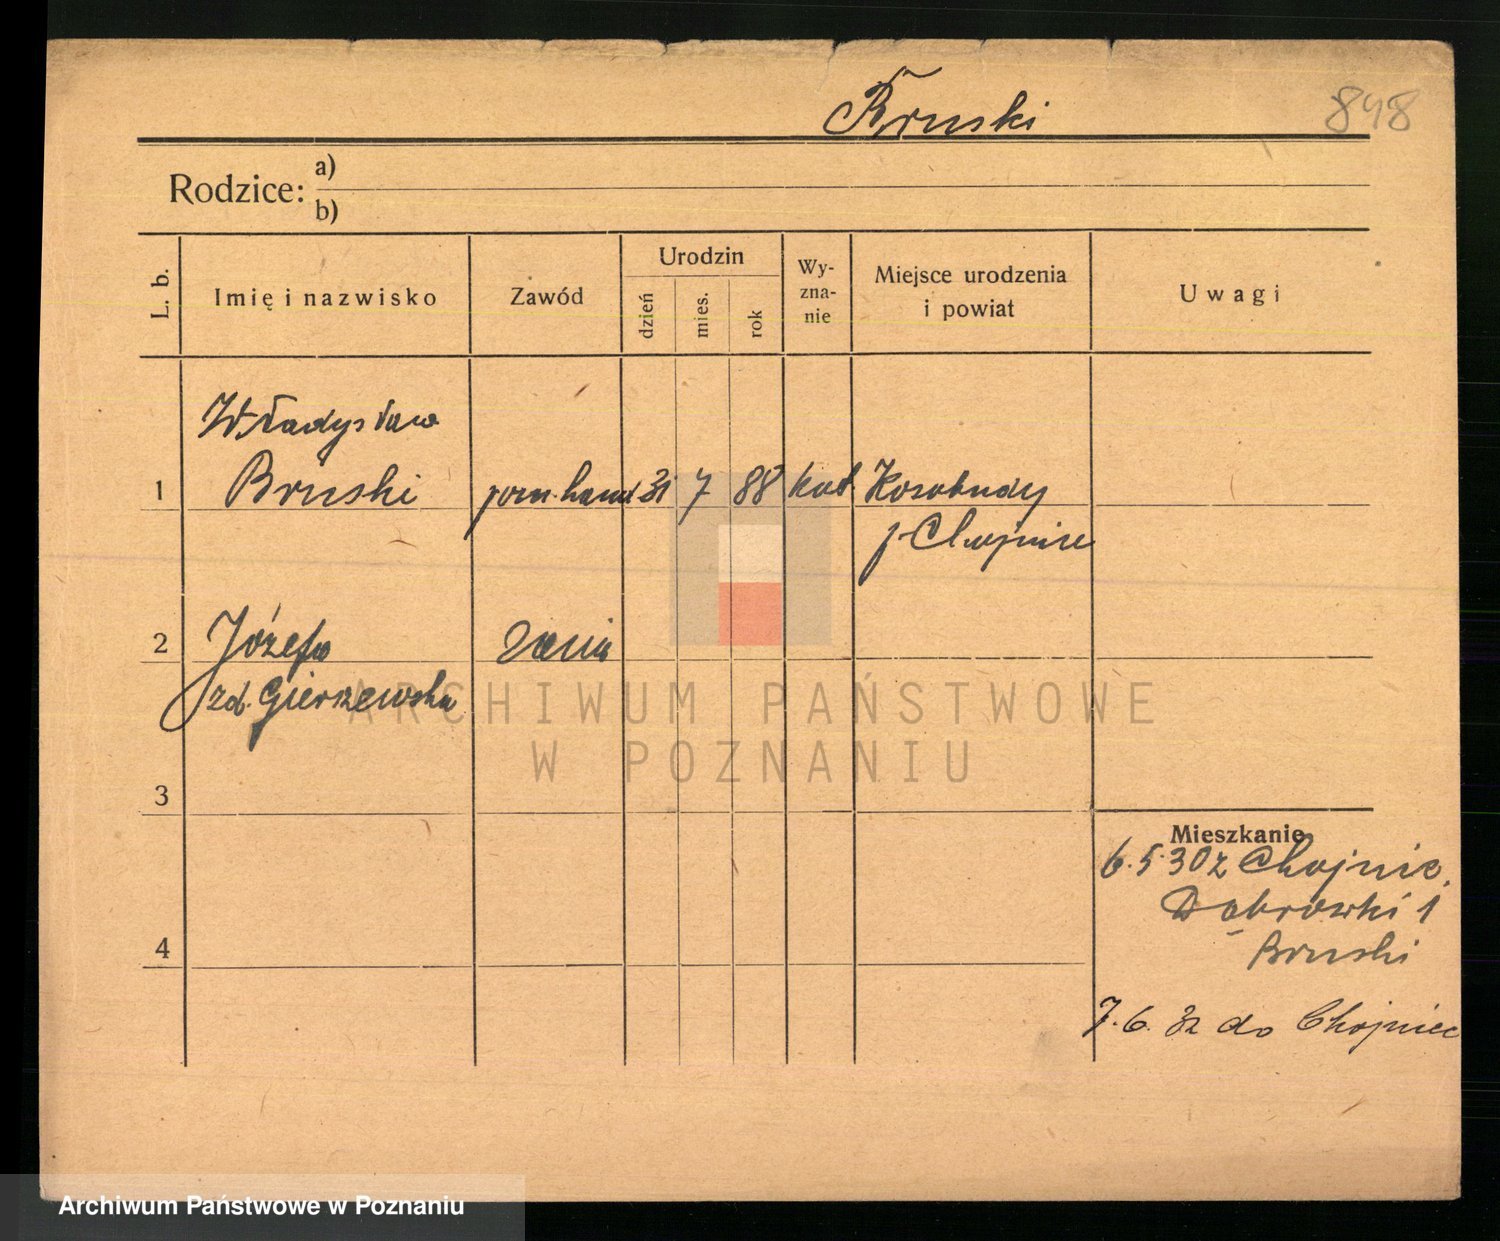 Bruski
848
Rodzice: a)
b)
L. b.
Imię i nazwisko
Zawód
Urodzin
dzień
mies.
rok
Wy-
zna-
nie
Miejsce urodzenia
i powiat
Uwagi
Władysław
1 Bruski pom. hand 31 7 88 kat. Kosobudy
p Chojnice
2 Józefa
zd. Gierszewska
3
4
Mieszkanie
6.5.30 z Chojnic.
Dąbrowski 1
Bruski
7.6.32 do Chojnice
ARCHIWUM PAŃSTWOWE
W POZNANIU
Archiwum Państwowe w Poznaniu